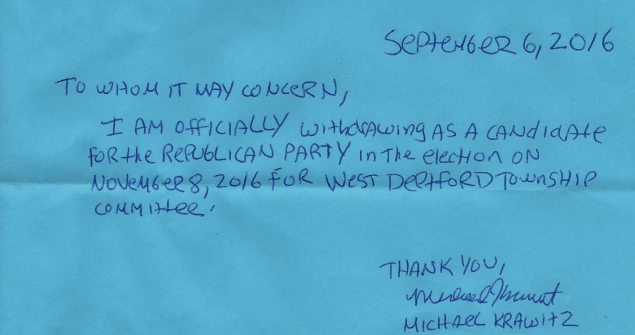 SEPTEMBER 6, 2016
TO WHOM IT MAY CONCERN,
I AM OFFICIALLY WITHDRAWING AS A CANDIDATE
FOR THE REPUBLICAN PARTY IN THE ELECTION ON
NOVEMBER 8, 2016 FOR WEST DEPTFORD TOWNSHIP
COMMITTEE.
THANK YOU,
MICHAEL KRAWITZ